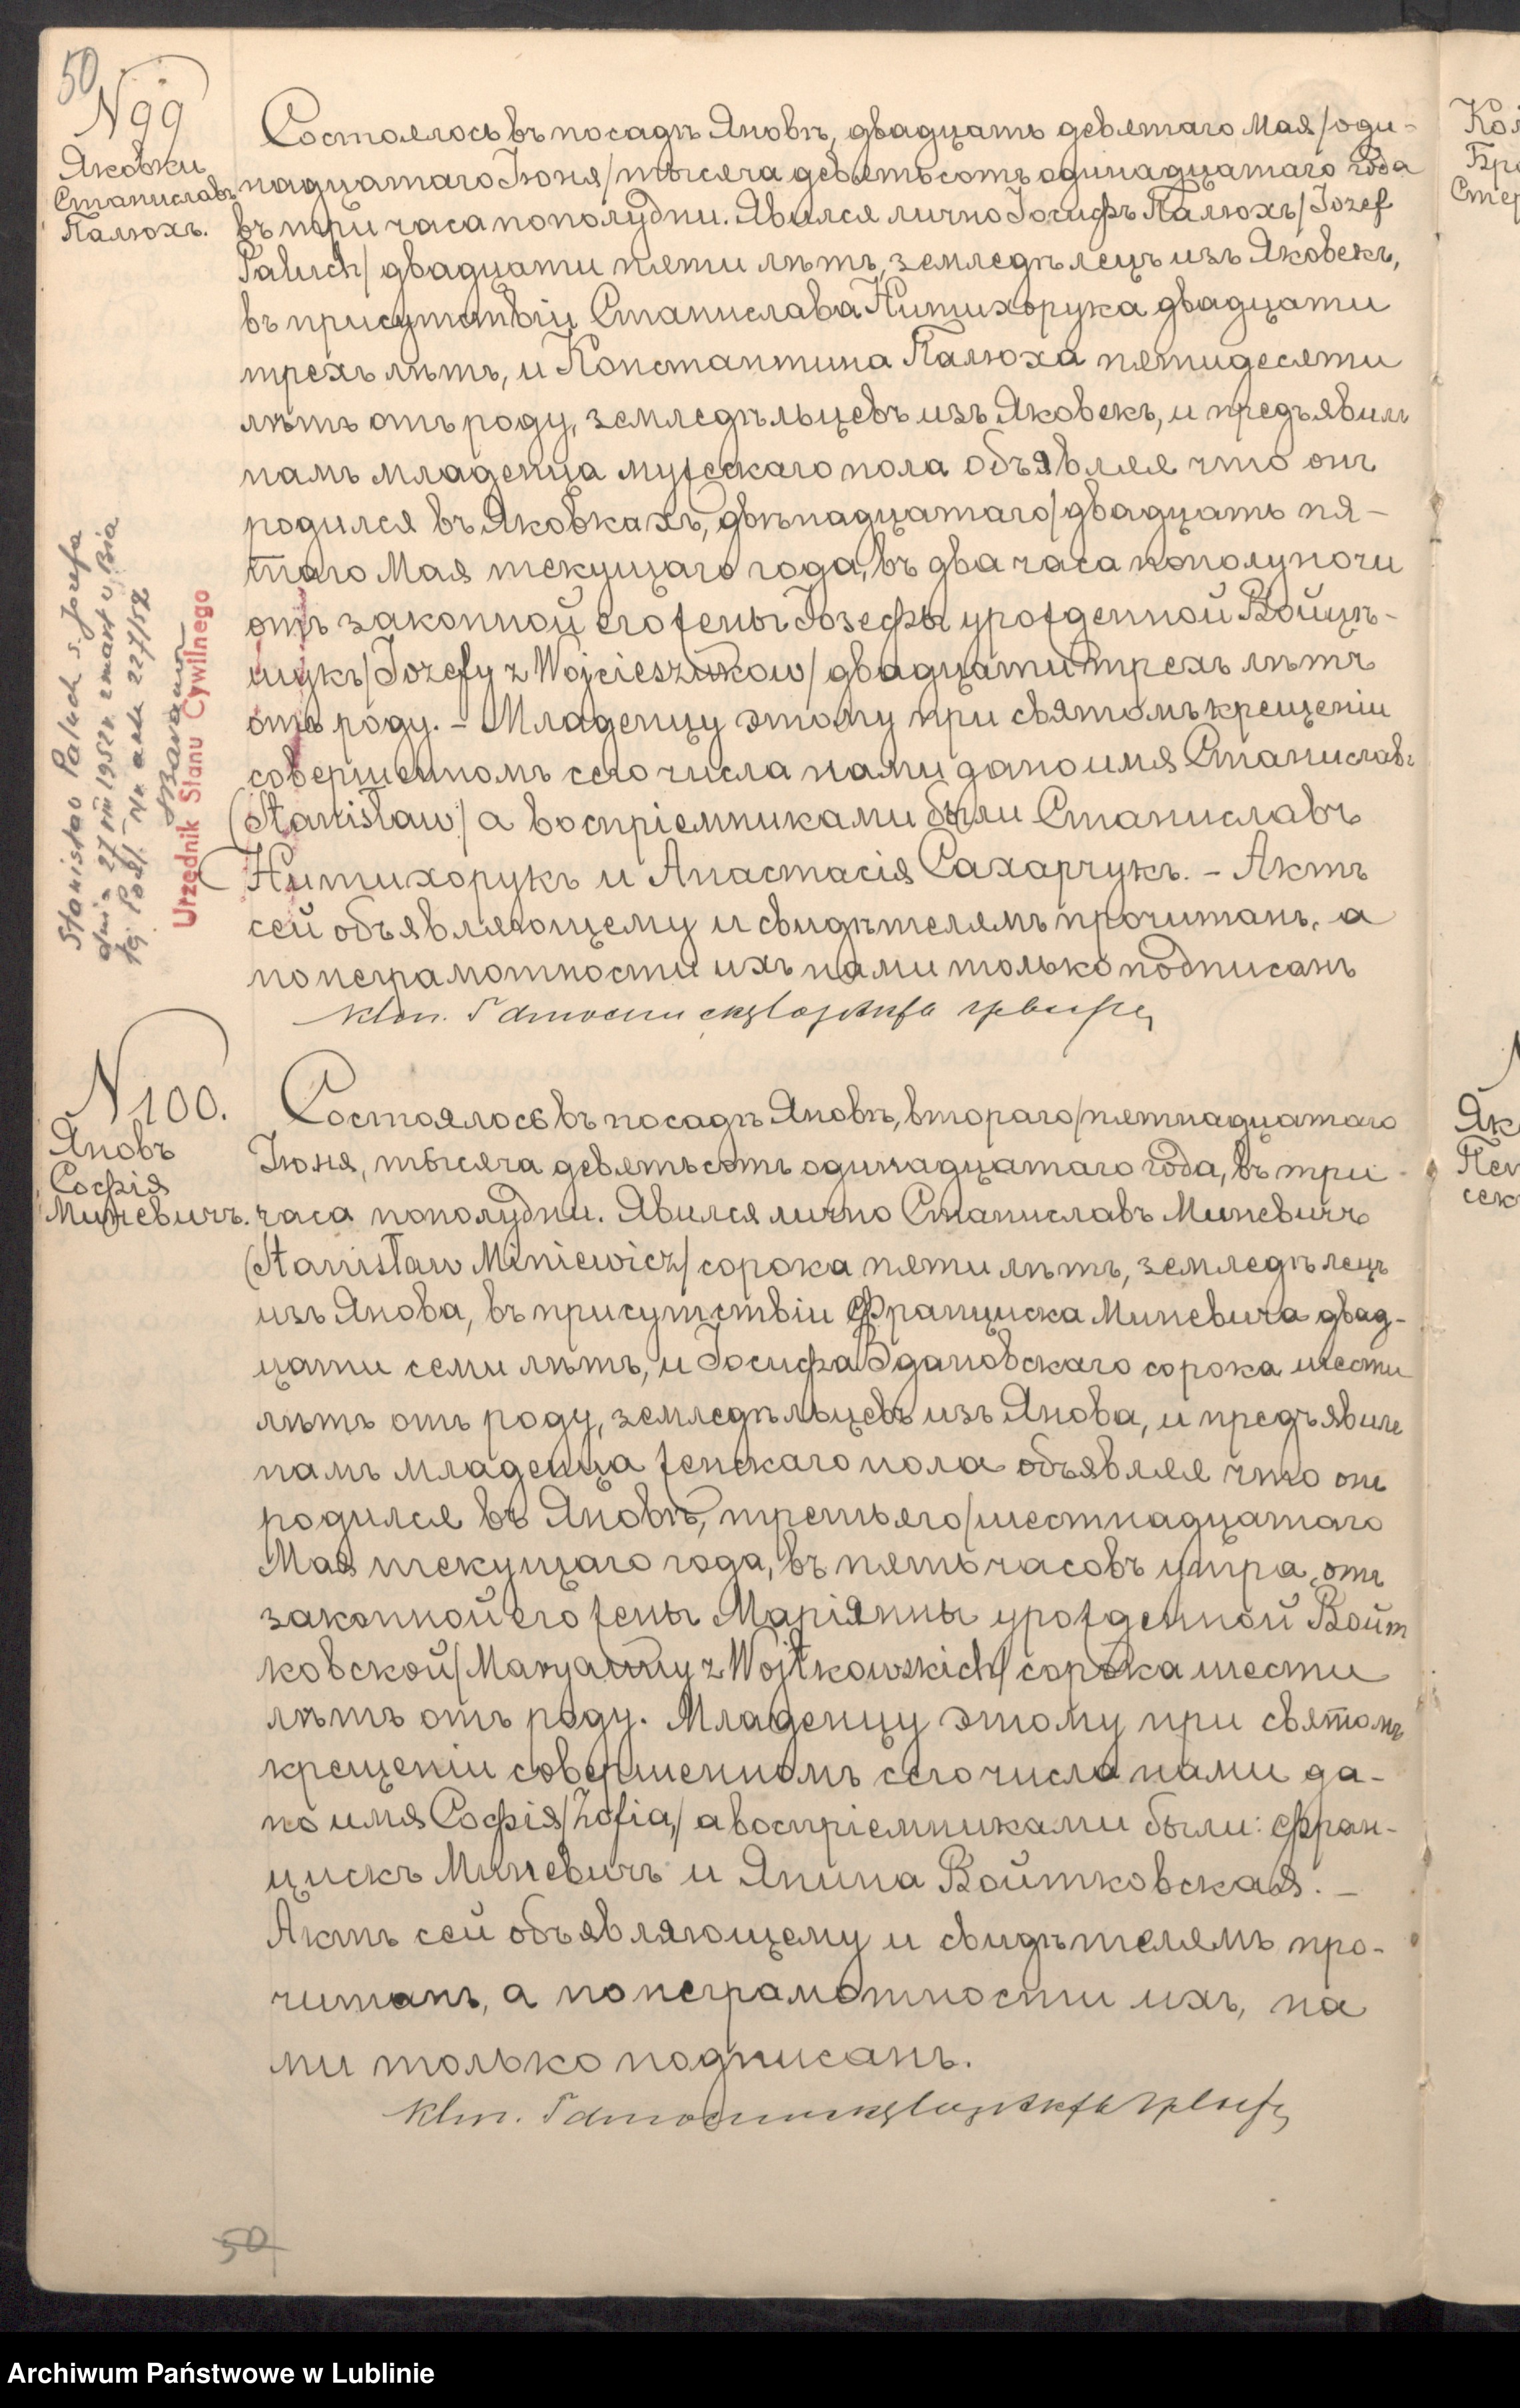 50
N 99
Яковки
Станиславъ
Палюхъ.
Состоялось въ посадѣ Яновѣ, двадцать девятаго Мая /оди-
надцатаго Іюня/ тысяча девятьсотъ одинадцатаго года
въ три часа пополудни. Явился лично Іосифъ Палюхъ /Iozef
Paluch/ двадцати пяти лѣтъ, земледѣлецъ изъ Яковекъ,
въ присутствіи Станислава Нитихорука двадцати
трехъ лѣтъ, и Константина Палюха пятидесяти
лѣтъ отъ роду, земледѣльцевъ изъ Яковекъ, и предъявилъ
намъ младенца мужескаго пола объявляя что онъ
родился въ Яковкахъ, двѣнадцатаго /двадцать пя-
таго Мая текущаго года, въ два часа пополуночи
отъ законной его жены Іозефы урожденной Войцѣ-
шукъ /Iozefy z Wojcieszuków/ двадцати трехъ лѣтъ
отъ роду. - Младенцу этому при святомъ крещеніи
совершенномъ сего числа нами дано имя Станиславъ
(Stanisław/ а воспріемниками были Станиславъ
Нитихорукъ и Анастасія Сахарчукъ. - Актъ
сей объявляющему и свидѣтелямъ прочитанъ, а
по неграмотности ихъ нами только подписанъ
Stanisław Paluch s. Jozefa
dnia 27 VIII 1952 r. zmarł w
Nr aktu 227/52
Urzędnik Stanu Cywilnego
N 100.
Яновъ
Софія
Миневичъ.
Состоялось въ посадѣ Яновѣ, втораго /пятнадцатаго
Іюня, тысяча девятьсотъ одинадцатаго года, въ три
часа пополудни. Явился лично Станиславъ Миневичъ
(Stanisław Miniewicz/ сорока пяти лѣтъ, земледѣлецъ
изъ Янова, въ присутствіи Франциска Миневича двад-
цати семи лѣтъ, и Іосифа Здановскаго сорока шести
лѣтъ отъ роду, земледѣльцевъ изъ Янова, и предъявилъ
намъ младенца женскаго пола объявляя что онъ
родился въ Яновѣ, третьяго /шестнадцатаго
Мая текущаго года, въ пять часовъ утра, отъ
законной его жены Маріянны урожденной Войт
ковской /Maryanny z Wojtkowskich/ сорока шести
лѣтъ отъ роду. Младенцу этому при святомъ
крещеніи совершенномъ сего числа нами да-
но имя Софія /Zofia,/ а воспріемниками были: Фран-
цискъ Миневичъ и Янина Войтковская. -
Актъ сей объявляющему и свидѣтелямъ про-
читанъ, а по неграмотности ихъ, на
ми только подписанъ.
50
Кол
Бр
Яко
Archiwum Państwowe w Lublinie